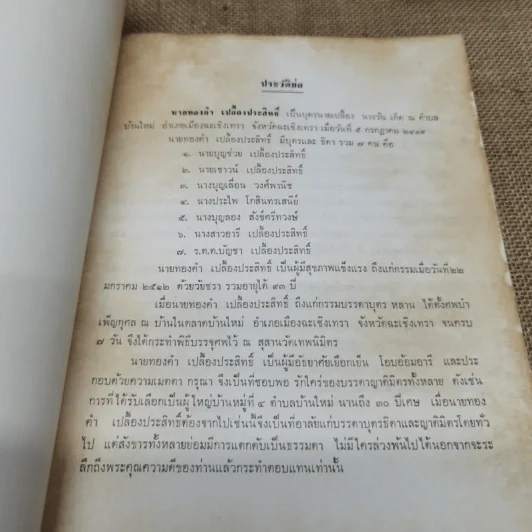 ประวัติย่อ
นายทองคำ เปลื้องประสิทธิ์ เป็นบุตรนายเปลื้อง นางวัน เกิด ณ ตำบล
บ้านใหม่ อำเภอเมืองฉะเชิงเทรา จังหวัดฉะเชิงเทรา เมื่อวันที่ ๕ กรกฎาคม ๒๔๑๙
นายทองคำ เปลื้องประสิทธิ์ มีบุตรและ ธิดา รวม ๗ คน คือ
๑. นายบุญช่วย เปลื้องประสิทธิ์
๒. นายเชาวน์ เปลื้องประสิทธิ์
๓. นางบุญเลื่อน วงศ์พานิช
๔. นางประไพ โกสินทรเสนีย์
๕. นางบุญลอง สังข์ศรีทวงษ์
๖. นางสาวอารี เปลื้องประสิทธิ์
๗. ร.ต.ต.บัญชา เปลื้องประสิทธิ์
นายทองคำ เปลื้องประสิทธิ์ เป็นผู้มีสุขภาพแข็งแรง ถึงแก่กรรมเมื่อวันที่๒๒
มกราคม ๒๕๑๒ ด้วยวัยชรา รวมอายุได้ ๙๓ ปี
เมื่อนายทองคำ เปลื้องประสิทธิ์ ถึงแก่กรรมบรรดาบุตร หลาน ได้ตั้งศพบำ
เพ็ญกุศล ณ บ้านในตลาดบ้านใหม่ อำเภอเมืองฉะเชิงเทรา จังหวัดฉะเชิงเทรา จนครบ
๗ วัน จึงได้กระทำพิธีบรรจุศพไว้ ณ สุสานวัดเทพนิมิตร
นายทองคำ เปลื้องประสิทธิ์ เป็นผู้มีอัธยาศัยเยือกเย็น โอบอ้อมอารี และประ
กอบด้วยความเมตตา กรุณา จึงเป็นที่ชอบพอ รักใคร่ของบรรดาญาติมิตรทั้งหลาย ดังเช่น
การที่ได้รับเลือกเป็นผู้ใหญ่บ้านหมู่ที่ ๔ ตำบลบ้านใหม่ นานถึง ๓๐ ปีเศษ เมื่อนายทอง
คำ เปลื้องประสิทธิ์ต้องจากไปเช่นนี้จึงเป็นที่อาลัยแก่บรรดาบุตรธิดาและญาติมิตรโดยทั่ว
ไป แต่สังขารทั้งหลายย่อมมีการแตกดับเป็นธรรมดา ไม่มีใครล่วงพ้นไปได้นอกจากจะระ
ลึกถึงพระคุณความดีของท่านแล้วกระทำตอบแทนเท่านั้น